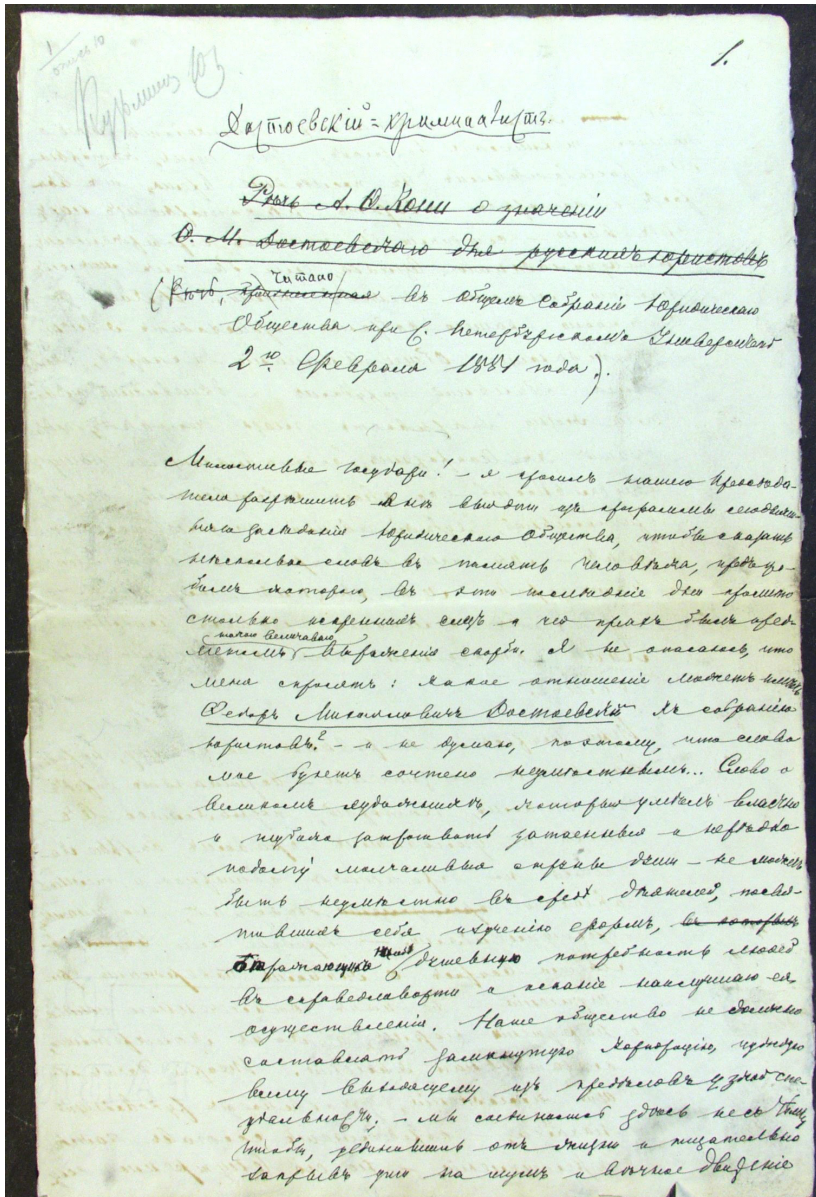 1.
Достоевскій = криминалистъ.
Рѣчь А. Ѳ. Кони о значеніи
Ѳ. М. Достоевскаго для русскихъ юристовъ
(Рѣчь, читано въ общемъ собраніи Юридическаго
Общества при С. Петербургскомъ Университетѣ
2го Февраля 1881 года).
Милостивые государи! – я просилъ нашего Предсѣда-
теля разрѣшить мнѣ выйти изъ программы
засѣданія Юридическаго Общества, чтобы сказать
нѣсколько словъ въ память человѣка, предъ гро-
бомъ котораго, въ эти послѣдніе дни пролито
столько искреннихъ слезъ и чей прахъ былъ пред-
метомъ величаваго выраженія скорби. Я не опасаюсь, что
меня спросятъ: какое отношеніе можетъ имѣть
Ѳедоръ Михайловичъ Достоевскій къ собранію
юристовъ? – и не думаю, поэтому, что слово
мое будетъ сочтено неумѣстнымъ... Слово о
великомъ художникѣ, который умѣлъ властно
и глубоко затрогивать затаенныя и нерѣдко
подолгу молчаливыя струны души – не можетъ
быть неумѣстно въ средѣ дѣятелей, посвя-
тившихъ себя изученію формъ, въ которыхъ
душевную потребность людей
въ справедливости и исканіе наилучшаго ея
осуществленія. Наше общество не должно
составлять замкнутую корпорацію, чуждую
всему выходящему изъ предѣловъ узкой спе-
ціальности, – мы соединились здѣсь не съ тѣмъ,
чтобы, уединившись отъ жизни и тщательно
закрывъ уши на шумъ и вѣчное движеніе